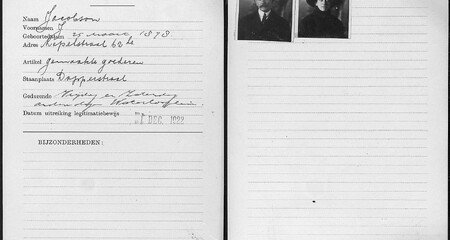 Naam Jacobson
Voornamen J
Geboortedatum 25 maart 1878
Adres Repelstraat 62
Artikel gemaakte goederen
Staanplaats Dapperstraat
Gedurende Vrijdag en Zaterdag
andere dagen Waterlooplein.
Datum uitreiking legitimatiebewijs DEC 1922
BIJZONDERHEDEN: